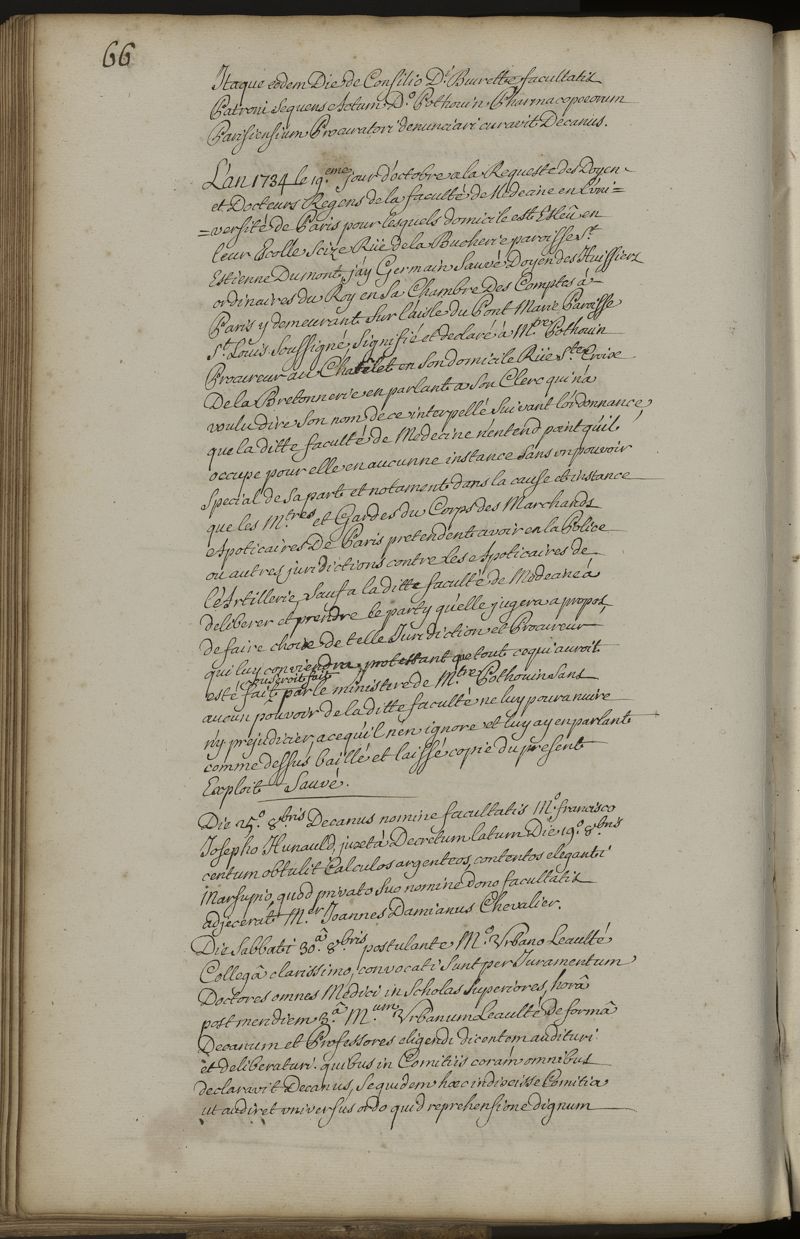 66
Itaque eodem Die de Consilio D.i Burette facultatis
Patroni sequens Actum D.o Pothouin Pharmacopoeorum
Parisiensium Procuratori denunciari curavit Decanus.
L'an 1734 le 19.eme jour d'octobre a la Requeste des Doyen
et Docteurs Regens de la faculté de Medecine en l'Uni=
=versité de Paris pour lesquels domicile est Esleu en
leur Escolle Scize Rüe de la Bucherie paroisse S.t
Estienne Dumont, j'ay Germain Sauvé Doyen des Huissiers
ordinaires du Roy en sa Chambre Des Comptes à
Paris y demeurant sur l'aisle du Pont Marie Paroisse
S.t Louis soussigné, signifié et declaré à M.tre Pothouin
Procureur au Chatelet en son domicile Rüe S.te Croix
De la Bretonnerie en parlant a Son Clerc qui n'a
voulu dire son nom de ce interpellé suivant l'ordonnance,
que la ditte faculté de Medecine n'entend point qu'il
occupe pour elle en aucunne instance sans un pouvoir
special de sa part et notament dans la cause et instance
que les M.tres et Gardes du Corps des Marchands
Apoticaires De Paris pretendent avoir en la Police
ou autres juridictions contre Les Apoticaires de
l'Artillerie, sauf a la ditte faculté de Medecine à
deliberer et prendre le party qu'elle jugera a propos,
de faire choix de telle Juridiction et Procureur
qui luy conviendra, protestant que tout ce qui auroit
ou seroit fait
esté fait par le ministere de M.tre Pothouin sans
aucun pouvoir de la ditte faculté ne luy poura nuire
n'y prejudicier, a ce qu'il n'en ignore et luy ay en parlant
comme dessus baillé et laissé copie du present
Exploit Sauvé.
Die 25.o 8.bris Decanus nomine facultatis M.o francisco
Josepho Hunauld, juxtà Decretum latum Die 19.o 8.bris
centum obtulit Calculos argenteos, contentos eleganti
Marsupio, quod privato suo nomine dono facultatis
adjecerat M.er Joannes Damianus Chevalier.
Die Sabbati 30.â 8.bris postulante M.o Urbano Leaulté
Collegâ clarissimo, convocati sunt per Juramentum
Doctores omnes Medici in Scholas Superiores, horâ
post meridiem 3.â M.um Urbanum Leaulté De formâ
Decanum et Professores eligendi dicentem audituri
et deliberaturi. quibus in Comitiis coràm omnibus
declaravit Decanus, se quidem hæc indixisse Comitia
ut audiret universus ordo quid reprehensione dignum